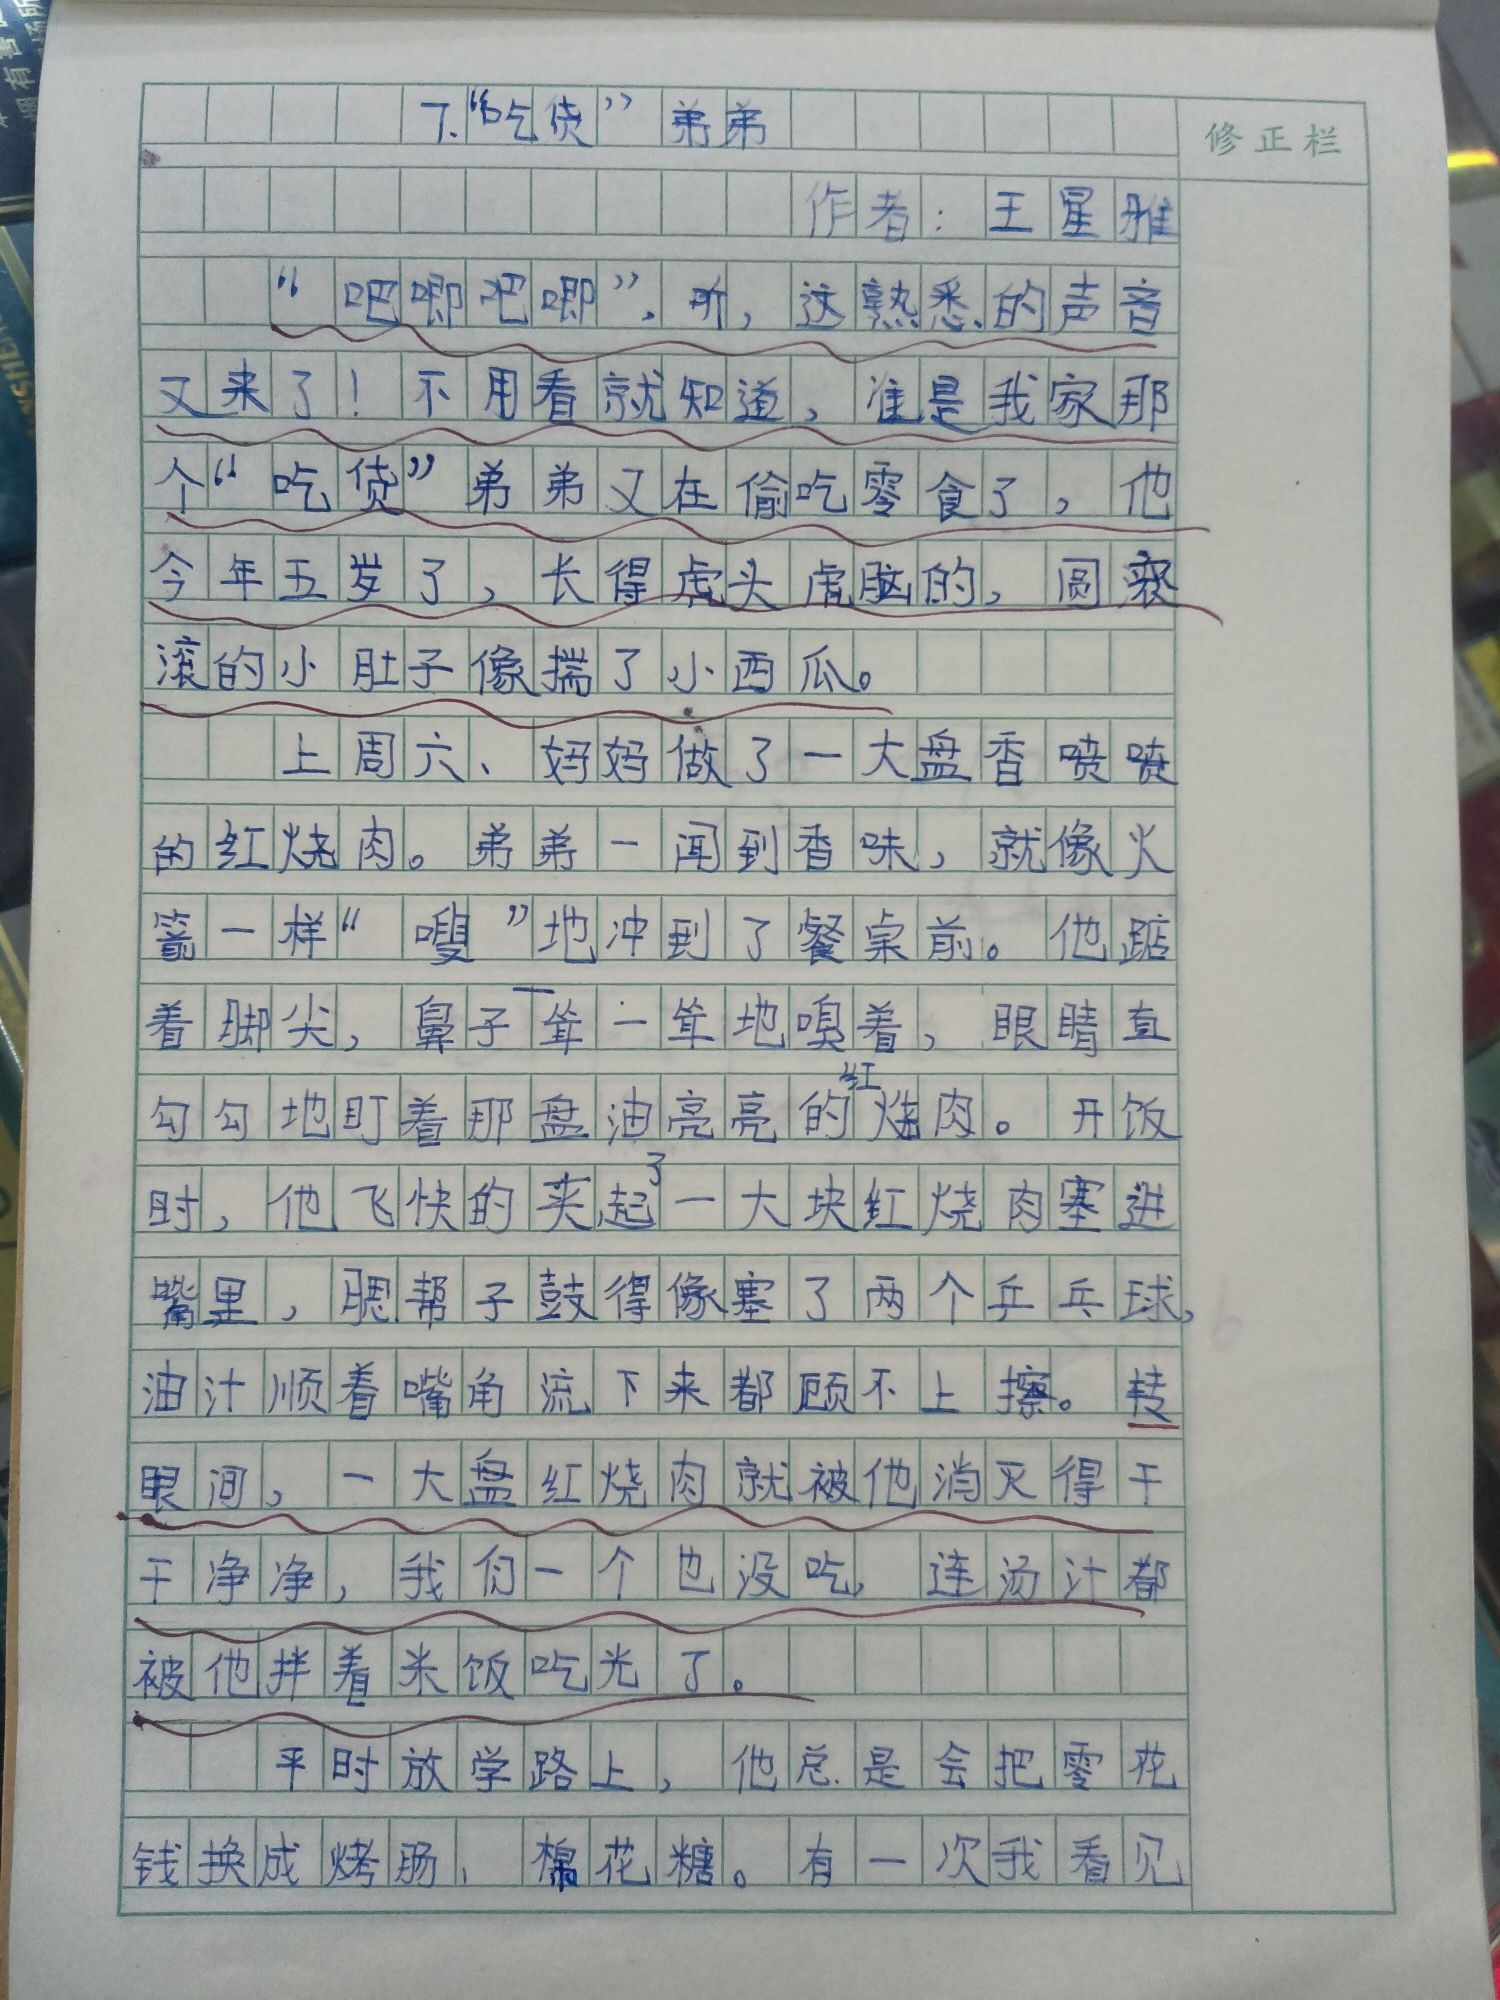 7.“吃货”弟弟
修正栏
作者：王星雅
“吧唧吧唧”，听，这熟悉的声音
又来了！不用看就知道，准是我家那
个“吃货”弟弟又在偷吃零食了，他
今年五岁了，长得虎头虎脑的，圆滚
滚的小肚子像揣了小西瓜。
上周六、妈妈做了一大盘香喷喷
的红烧肉。弟弟一闻到香味，就像火
箭一样“嗖”地冲到了餐桌前。他踮
着脚尖，鼻子一耸一耸地嗅着，眼睛直
勾勾地盯着那盘油亮亮的红烧肉。开饭
时，他飞快的夹起了一大块红烧肉塞进
嘴里，腮帮子鼓得像塞了两个乒乓球，
油汁顺着嘴角流下来都顾不上擦。转
眼间，一大盘红烧肉就被他消灭得干
干净净，我们一个也没吃，连汤汁都
被他拌着米饭吃光了。
平时放学路上，他总是会把零花
钱换成烤肠、棉花糖。有一次我看见